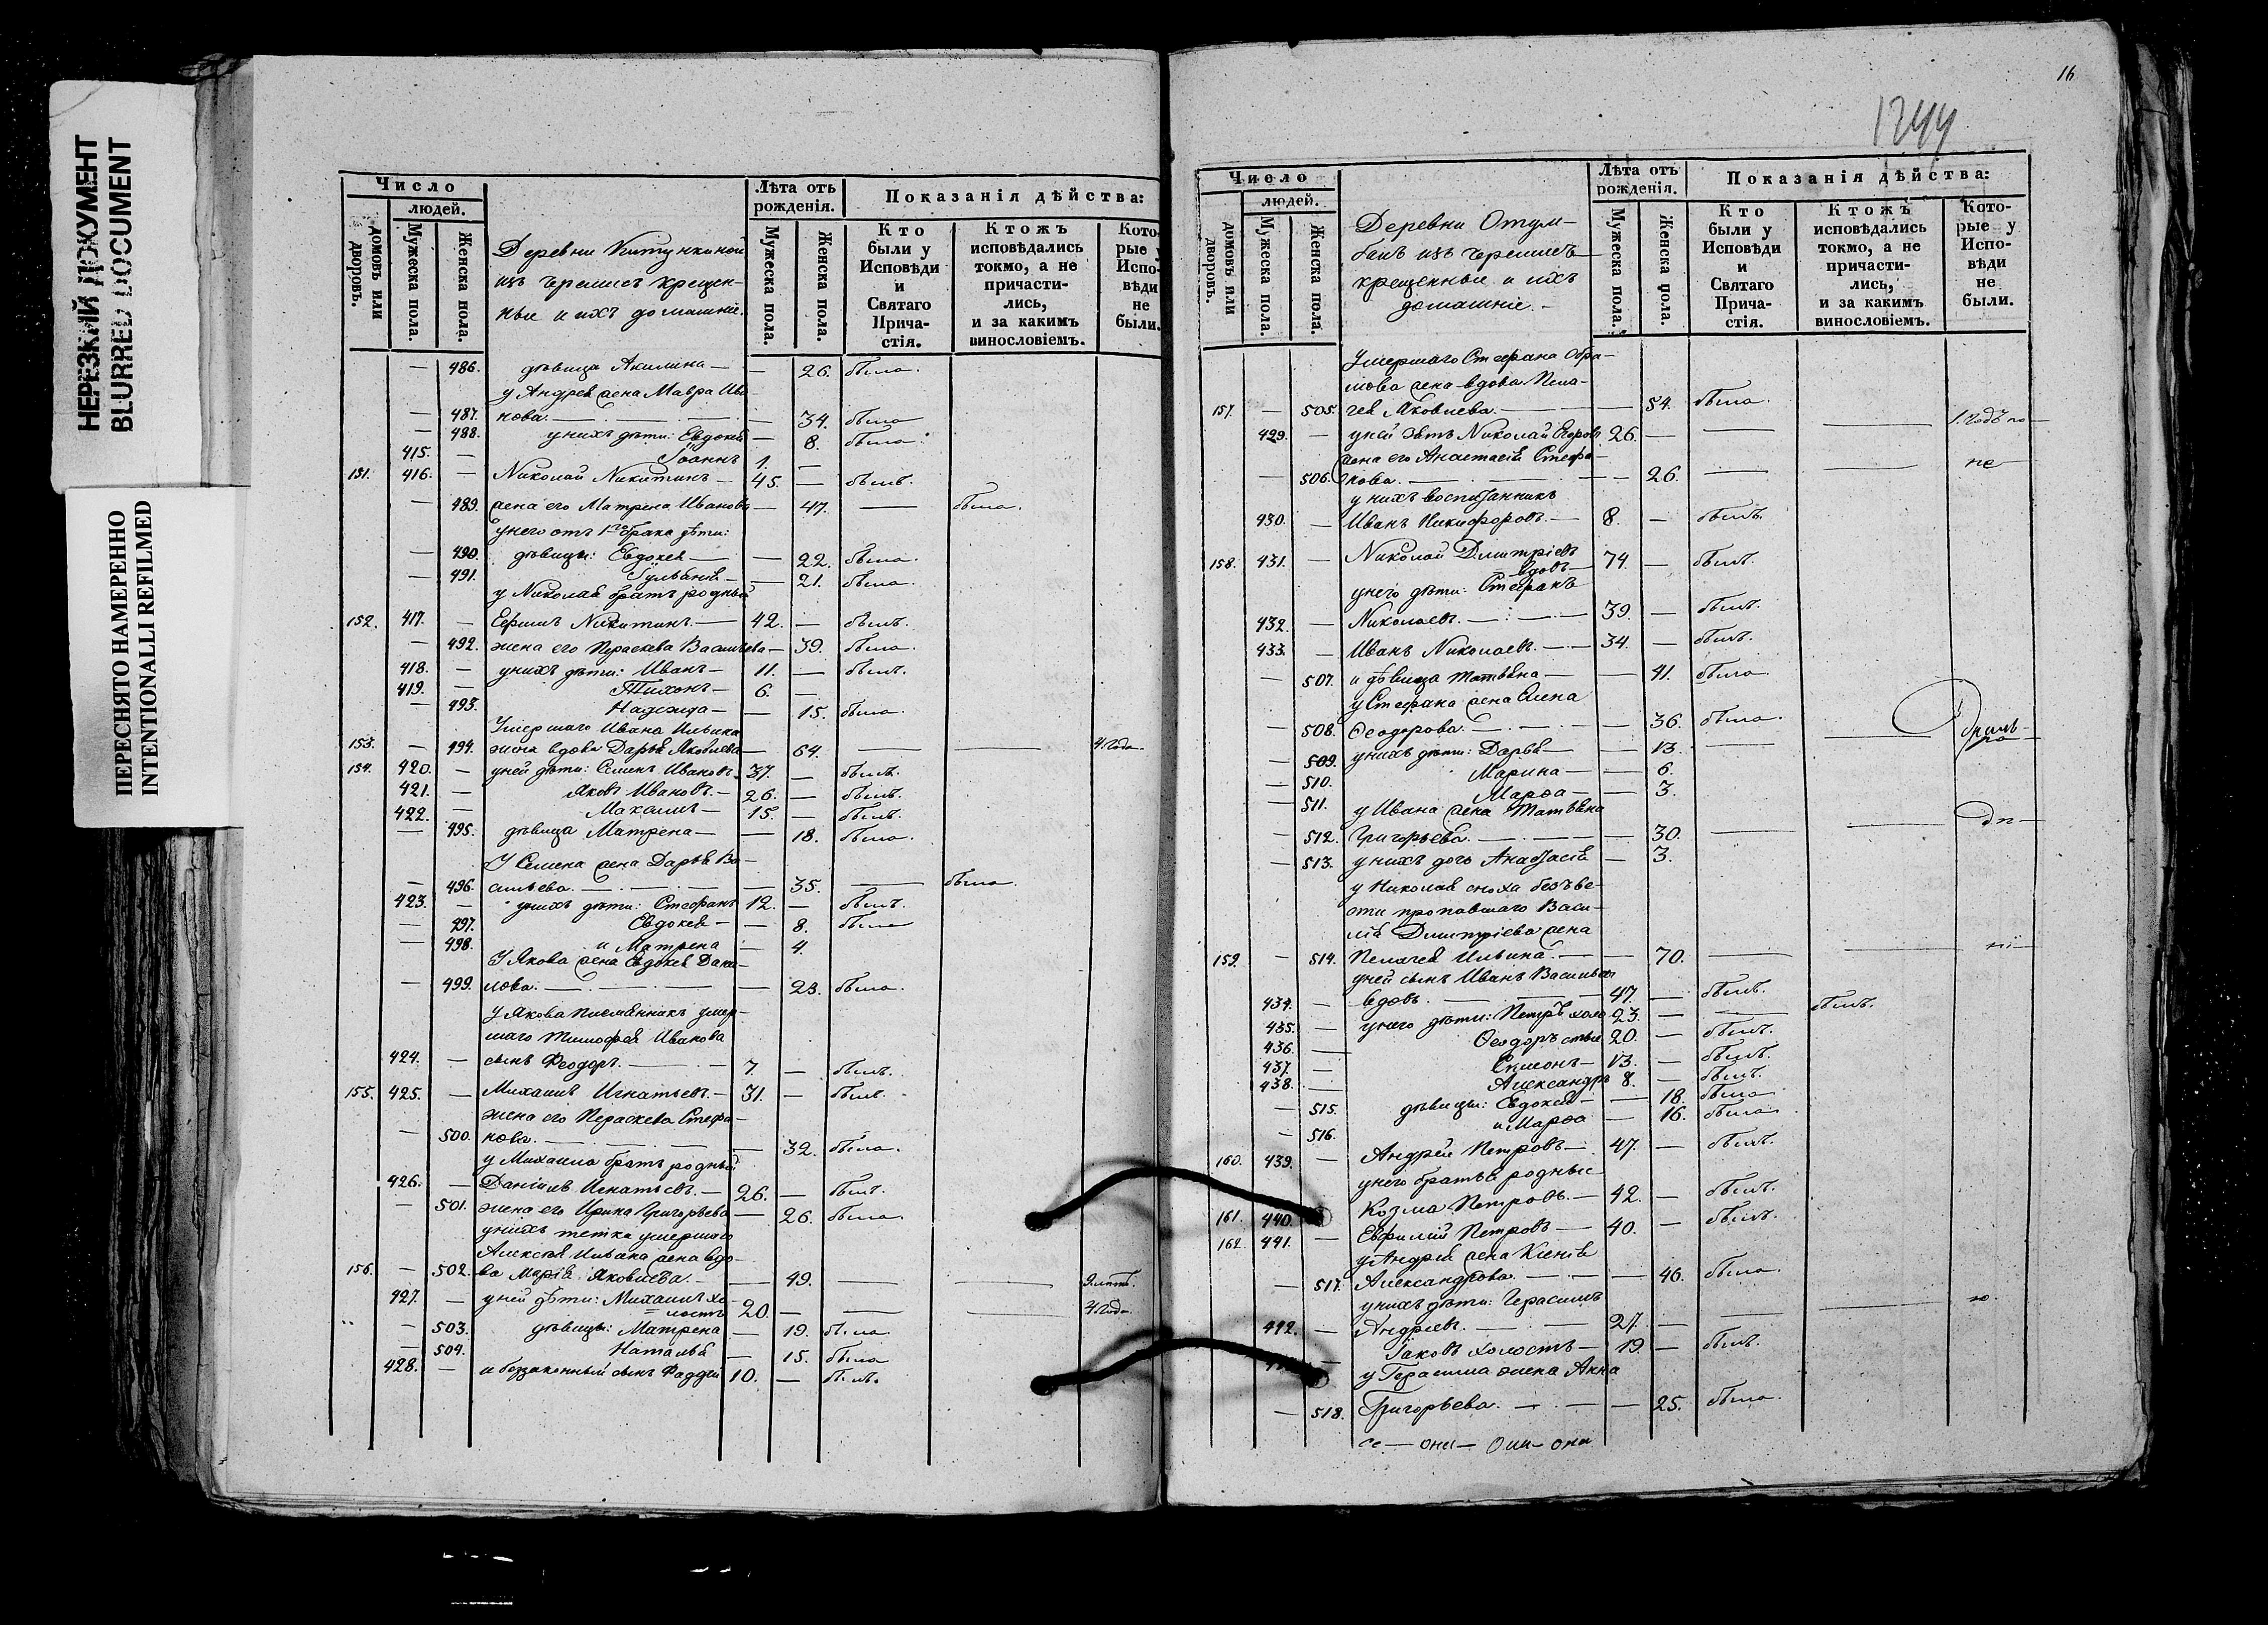 НЕРЕЗКИЙ ДОКУМЕНТ
BLURRED DOCUMENT
ПЕРЕСНЯТО НАМЕРЕННО
INTENTIONALLI REFILMED
Число
людей.
домовъ или дворовъ.
Мужеска пола.
Женска пола.
Деревни
изъ черемисъ крещен-
ные и ихъ домашніе.
Лѣта отъ рожденія.
Мужеска пола.
Женска пола.
Показанія дѣйства:
Кто были у Исповѣди и Святаго Прича-стія.
Ктожъ исповѣдались токмо, а не причасти-лись, и за какимъ винословіемъ.
Кото-рые у Испо-вѣди не были.
— 486. дѣвица Акилина — — 26. была.
у Андрея жена Мавра Ива-
— 487. нова. — 34. была
— 488. у нихъ дѣти: Евдокея — 8. была
415. — Іоаннъ 1. —
151. 416. — Николай Никитинъ — 45. — былъ.
— 489. жена его Матрена Иванова — 47. — была.
у него отъ 1го брака дѣти:
— 490. дѣвицы: Евдокея — — 22. была.
— 491. — 21. была.
у Николая братъ родный
152. 417. — Ефимъ Никитинъ — 42. — былъ.
— 492. жена его Параскева Васильева — 39. была.
418. — у нихъ дѣти: Иванъ — 11. — былъ.
419. — Тихонъ — 6. —
— 493. Надежда — — 15. была.
Умершаго Ивана Ильина
153. — 494. жена вдова Дарья Яковлева — 64. — — 4 года
154. 420. — у ней дѣти: Семенъ Ивановъ 37. — былъ.
421. — Яковъ Ивановъ — 26. — былъ.
422. — Михаилъ — 15. — былъ.
— 495. дѣвица Матрена — — 18. была.
У Семена жена Дарья Ва-
— 496. сильева. — — 35. — была.
423. — у нихъ дѣти: Стефанъ 12. — былъ.
— 497. Евдокея — — 8. была
— 498. и Матрена — 4.
У Якова жена Евдокея Дани-
— 499. лова. — — 23. была.
У Якова племянникъ умер-
шаго Тимофея Иванова
424. — сынъ Феодоръ. — 7. — былъ.
155. 425. — Михаилъ Игнатьевъ. — 31. — былъ.
жена его Параскева Стефа-
— 500. нова. — — 32. была.
у Михаила братъ родный
426. — Даніилъ Игнатьевъ. — 26. — былъ.
— 501. жена его Ирина Григорьева — 26. была.
у нихъ тетка умершаго
Алексѣя Ильина жена вдо-
156. — 502. ва Марія Яковлева. — — 49. — — 9 лѣтъ.
427. — у ней дѣти: Михаилъ хо-
лостъ 20. — — — 4 года
— 503. дѣвицы: Матрена — 19. была
— 504. Наталья — 15. была
428. — и беззаконный сынъ Фаддей 10. — былъ.
16
1244
Число
людей.
домовъ или дворовъ.
Мужеска пола.
Женска пола.
Деревни Отум-
балъ изъ черемисъ
крещенные и ихъ
домашніе. —
Лѣта отъ рожденія.
Мужеска пола.
Женска пола.
Показанія дѣйства:
Кто были у Исповѣди и Святаго Прича-стія.
Ктожъ исповѣдались токмо, а не причасти-лись, и за какимъ винословіемъ.
Кото-рые у Испо-вѣди не были.
Умершаго Стефана Абра-
мова жена вдова Пела-
157. — 505. гея Яковлева. — — 54. была.
429. — у ней зять Николай Егоровъ 26. — — — 1. годъ по —
жена его Анастасія Стефа-
— 506. нова. — — 26. — — не
у нихъ воспитанникъ
430. — Иванъ Никифоровъ. — 8. — былъ.
158. 431. — Николай Димитріевъ
вдовъ — 74. — былъ.
у него дѣти: Стефанъ
432. — Николаевъ. — 39. — былъ.
433. — Иванъ Николаевъ. — 34. — былъ.
— 507. и дѣвица Татьяна — — 41. была
у Стефана жена Елена
— 508. Ѳеодорова. — — 36. была.
— 509. у нихъ дѣти: Дарья — — 13. — —
— 510. Марина — — 6.
— 511. Марѳа — — 3.
у Ивана жена Татьяна
— 512. Григорьева. — — 30. — —
— 513. у нихъ дочь Анастасія — 3.
у Николая сноха безъ вѣ-
сти пропавшаго Васи-
лія Димитріева жена
159. — 514. Пелагея Ильина. — — 70. — —
у ней сынъ Иванъ Васильевъ
434. — вдовъ. — 47. — былъ.
435. — у него дѣти: Петръ холо 23. — — былъ.
436. — Ѳеодоръ стые 20. — былъ.
437. — Симонъ — 13. — былъ.
438. — Александръ 8. — былъ.
— 515. дѣвицы: Евдокея — — 18. была
— 516. и Марѳа — 16. была
160. 439. — Андрей Петровъ — 47. — былъ.
у него братья родные
161. 440. Козма Петровъ. — 42. — былъ.
162. 441. — Евфимій Петровъ — 40. — былъ.
у Андрея жена Ксенія
— 517. Александрова. — — 46. была.
у нихъ дѣти: Герасимъ
442. — Андреевъ. — 27. — — —
— Іаковъ холостъ — 19. — былъ.
у Герасима жена Анна
— 518. Григорьева. — — 25. была.